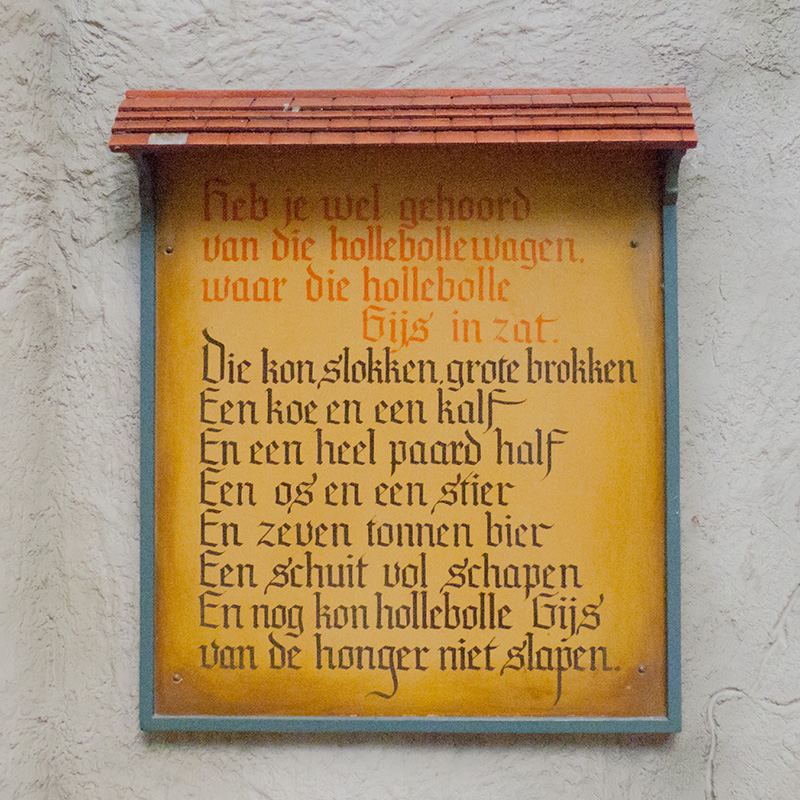 Heb je wel gehoord
van die hollebollewagen,
waar die hollebolle
Gijs in zat.
Die kon slokken, grote brokken
Een koe en een kalf
En een heel paard half
Een os en een stier
En zeven tonnen bier
Een schuit vol schapen
En nog kon hollebolle Gijs
van de honger niet slapen.